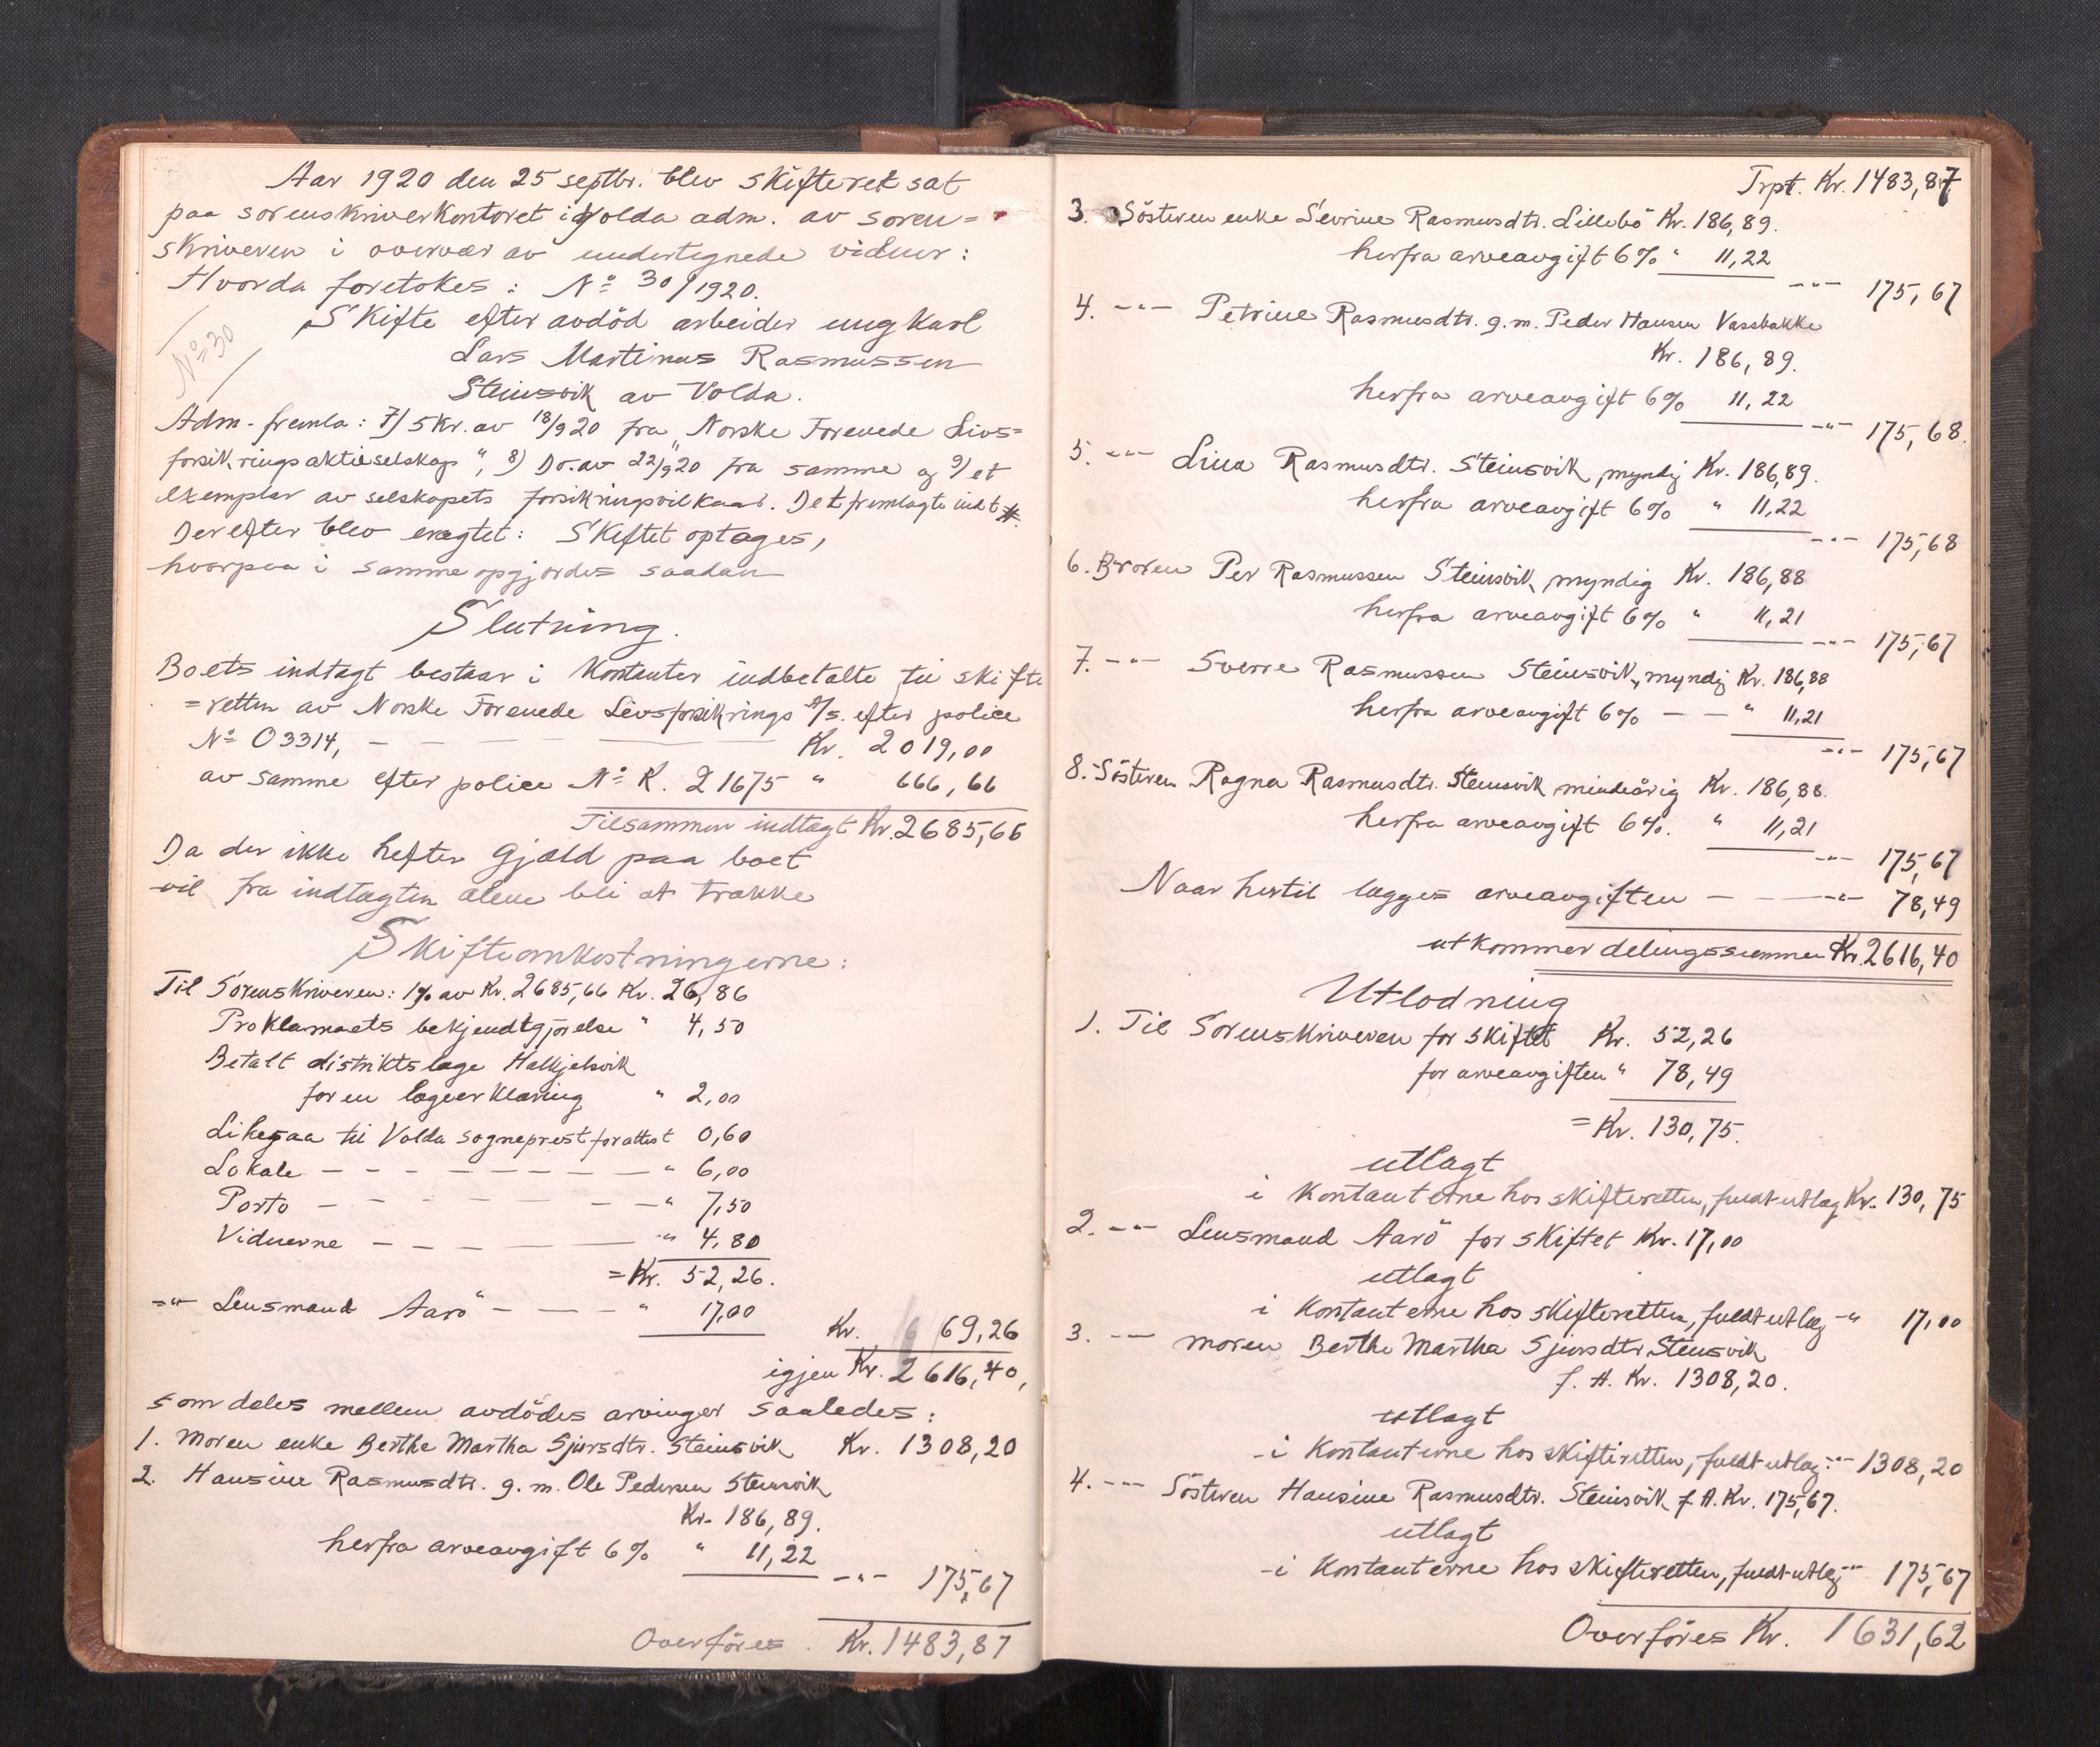 Aar 1920 den 25 septbr. blev skifteret sat
paa sorenskriverkontoret i Volda adm. av soren=
skriveren i overvær av undertegnede vidner:
Hvorda foretokes: No 30/1920.
No 30
Skifte efter avdöd arbeider ungkarl
Lars Martinus Rasmussen
Steinsvik av Volda.
Adm. fremla: 7) 5 kr. av 18/9 20 fra "Norske Forenede Livs=
forsikringsaktieselskap", 8) Do. av 22/9 20 fra samme og 9) et
exemplar av selskapets forsikringsvilkaar. Det fremlagte indt #.
Derefter blev eragtet: Skiftet optages,
hvorpaa i samme opgjordes saadan
Slutning.
Boets indtægt bestaar i kontanter indbetalte til skifte
=retten av Norske Forenede Livsforsikrings A/S. efter police
No 03314, — — — — — Kr. 2019,00
av samme efter police No K. 21675 " 666,66
Tilsammen indtægt Kr. 2685,66
Da der ikke hefter gjæld paa boet
vil fra indtægten alene bli at trække
Skifteomkostningerne:
Til Sorenskriveren: 1% av Kr. 2685,66 Kr. 26,86
Proklamaets bekjendtgjörelse " 4,50
Betalt distriktslæge Halkjelsvik
for en lægeerklæring " 2,00
Likesaa til Volda sogneprest for attest 0,60
Lokale — — — — — — — " 6,00
Porto — — — — — — " 7,50
Vidnerne — — — — — " 4,80
= Kr. 52,26.
-"- Lensmand Aarö — — — " 17,00
Kr. 69,26
igjen Kr. 2616,40,
som deles mellem avdödes arvinger saaledes:
1. Moren enke Berthe Martha Sjursdtr. Steinsvik Kr. 1308,20
2. Hansine Rasmusdtr. g. m. Ole Pedersen Steinsvik
Kr. 186,89.
herfra arveavgift 6% " 11,22
-"- 175,67
Overföres. Kr. 1483,87
Trpt. Kr. 1483,87
3. Sösteren enke Sevrine Rasmusdtr. Lillebö Kr. 186,89.
herfra arveavgift 6% " 11,22
-"- 175,67
4. -"- Petrine Rasmusdtr. g. m. Peder Hansen Vassbakke
Kr. 186,89.
herfra arveavgift 6% 11,22
-"- 175,68.
5. -"- Lina Rasmusdtr. Steinsvik, myndig Kr. 186,89.
herfra arveavgift 6% " 11,22
-"- 175,68
6. Broren Per Rasmussen Steinsvik, myndig Kr. 186,88
herfra arveavgift 6% " 11,21
-"- 175,67
7. -"- Sverre Rasmussen Steinsvik, myndig Kr. 186,88
herfra arveavgift 6% — — " 11,21
-"- 175,67
8. Sösteren Ragna Rasmusdtr. Steinsvik mindeårig Kr. 186,88.
herfra arveavgift 6%. " 11,21
-"- 175,67
Naar hertil lægges arveavgiften — — -"- 78,49
utkommer delingssummen Kr. 2616,40
Utlodning
1. Til Sorenskriveren for skiftet Kr. 52,26
for arveavgiften " 78,49
= Kr. 130,75.
utlagt
i kontanterne hos skifteretten, fuldt utlæg Kr. 130,75
2. -"- Lensmand Aarö for skiftet Kr. 17,00
utlagt
i kontanterne hos skifteretten, fuldt utlæg -"- 17,00
3. -"- moren Berthe Martha Sjursdtr. Steinsvik
f. A. Kr. 1308,20.
utlagt
i kontanterne hos skifteretten, fuldt utlæg -"- 1308,20
4. -"- Sösteren Hansine Rasmusdtr. Steinsvik f. A. Kr. 175,67.
utlagt
i kontanterne hos skifteretten, fuldt utlæg -"- 175,67
Overföres Kr. 1631,62